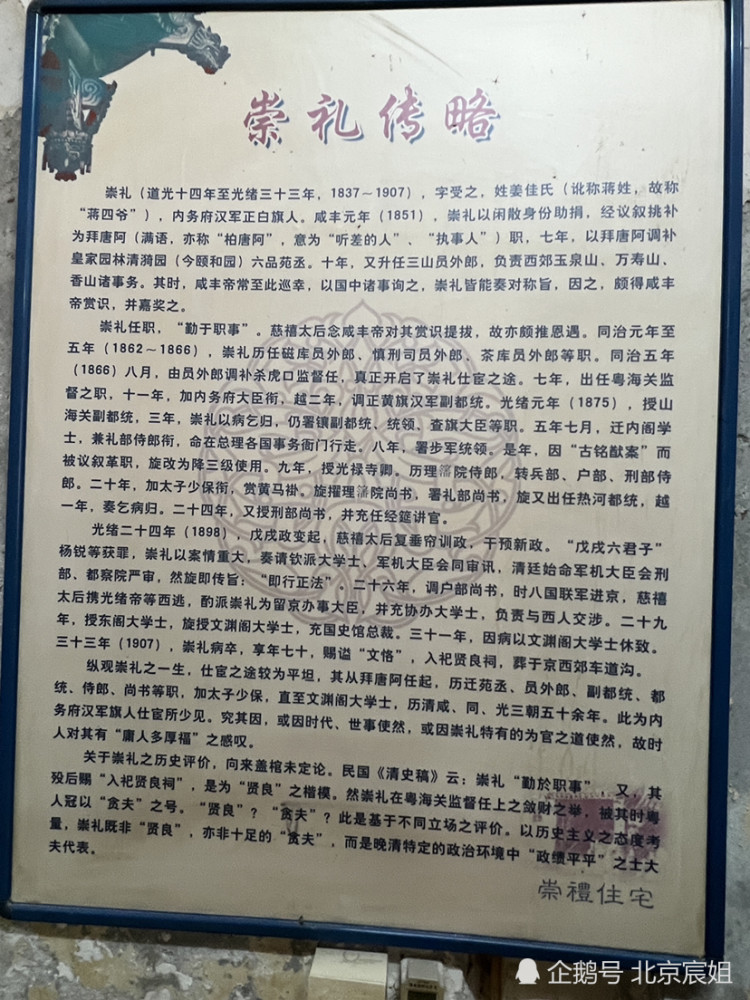 崇礼传略
崇礼（道光十四年至光绪三十三年，1837～1907），字受之，姓姜佳氏（讹称蒋姓，故称
“蒋四爷”），内务府汉军正白旗人。咸丰元年（1851），崇礼以闲散身份助捐，经议叙挑补
为拜唐阿（满语，亦称“柏唐阿”，意为“听差的人”、“执事人”）职，七年，以拜唐阿调补
皇家园林清漪园（今颐和园）六品苑丞。十年，又升任三山员外郎，负责西郊玉泉山、万寿山、
香山诸事务。其时，咸丰帝常至此巡幸，以国中诸事询之，崇礼皆能奏对称旨，因之，颇得咸丰
帝赏识，并嘉奖之。
崇礼任职，“勤于职事”。慈禧太后念咸丰帝对其赏识提拔，故亦颇推恩遇。同治元年至
五年（1862～1866），崇礼历任磁库员外郎、慎刑司员外郎、茶库员外郎等职。同治五年
（1866）八月，由员外郎调补杀虎口监督任，真正开启了崇礼仕宦之途。七年，出任粤海关监
督之职，十一年，加内务府大臣衔，越二年，调正黄旗汉军副都统。光绪元年（1875），授山
海关副都统，三年，崇礼以病乞归，仍署镶副都统、统领、查旗大臣等职。五年七月，迁内阁学
士，兼礼部侍郎衔，命在总理各国事务衙门行走。八年，署步军统领。是年，因“古铭猷案”而
被议叙革职，旋改为降三级使用。九年，授光禄寺卿。历理藩院侍郎，转兵部、户部、刑部侍
郎。二十年，加太子少保衔，赏黄马褂。旋擢理藩院尚书，署礼部尚书，旋又出任热河都统，越
一年，奏乞病归。二十四年，又授刑部尚书，并充任经筵讲官。
光绪二十四年（1898），戊戌政变起，慈禧太后复垂帘训政，干预新政。“戊戌六君子”
杨锐等获罪，崇礼以案情重大，奏请钦派大学士、军机大臣会同审讯，清廷始命军机大臣会刑
部、都察院严审，然旋即传旨：“即行正法”。二十六年，调户部尚书，时八国联军进京，慈禧
太后携光绪帝等西逃，酌派崇礼为留京办事大臣，并充协办大学士，负责与西人交涉。二十九
年，授东阁大学士，旋授文渊阁大学士，充国史馆总裁。三十一年，因病以文渊阁大学士休致。
三十三年（1907），崇礼病卒，享年七十，赐谥“文恪”，入祀贤良祠，葬于京西郊车道沟。
纵观崇礼之一生，仕宦之途较为平坦，其从拜唐阿任起，历迁苑丞、员外郎、副都统、都
统、侍郎、尚书等职，加太子少保，直至文渊阁大学士，历清咸、同、光三朝五十余年。此为内
务府汉军旗人仕宦所少见。究其因，或因时代、世事使然，或因崇礼特有的为官之道使然，故时
人对其有“庸人多厚福”之感叹。
关于崇礼之历史评价，向来盖棺未定论。民国《清史稿》云：崇礼“勤於职事”，又，其
殁后赐“入祀贤良祠”，是为“贤良”之楷模。然崇礼在粤海关监督任上之敛财之举，被其时粤
人冠以“贪夫”之号。“贤良”？“贪夫”？此是基于不同立场之评价。以历史主义之态度考
量，崇礼既非“贤良”，亦非十足的“贪夫”，而是晚清特定的政治环境中“政绩平平”之士大
夫代表。
崇禮住宅
企鹅号 北京宸姐